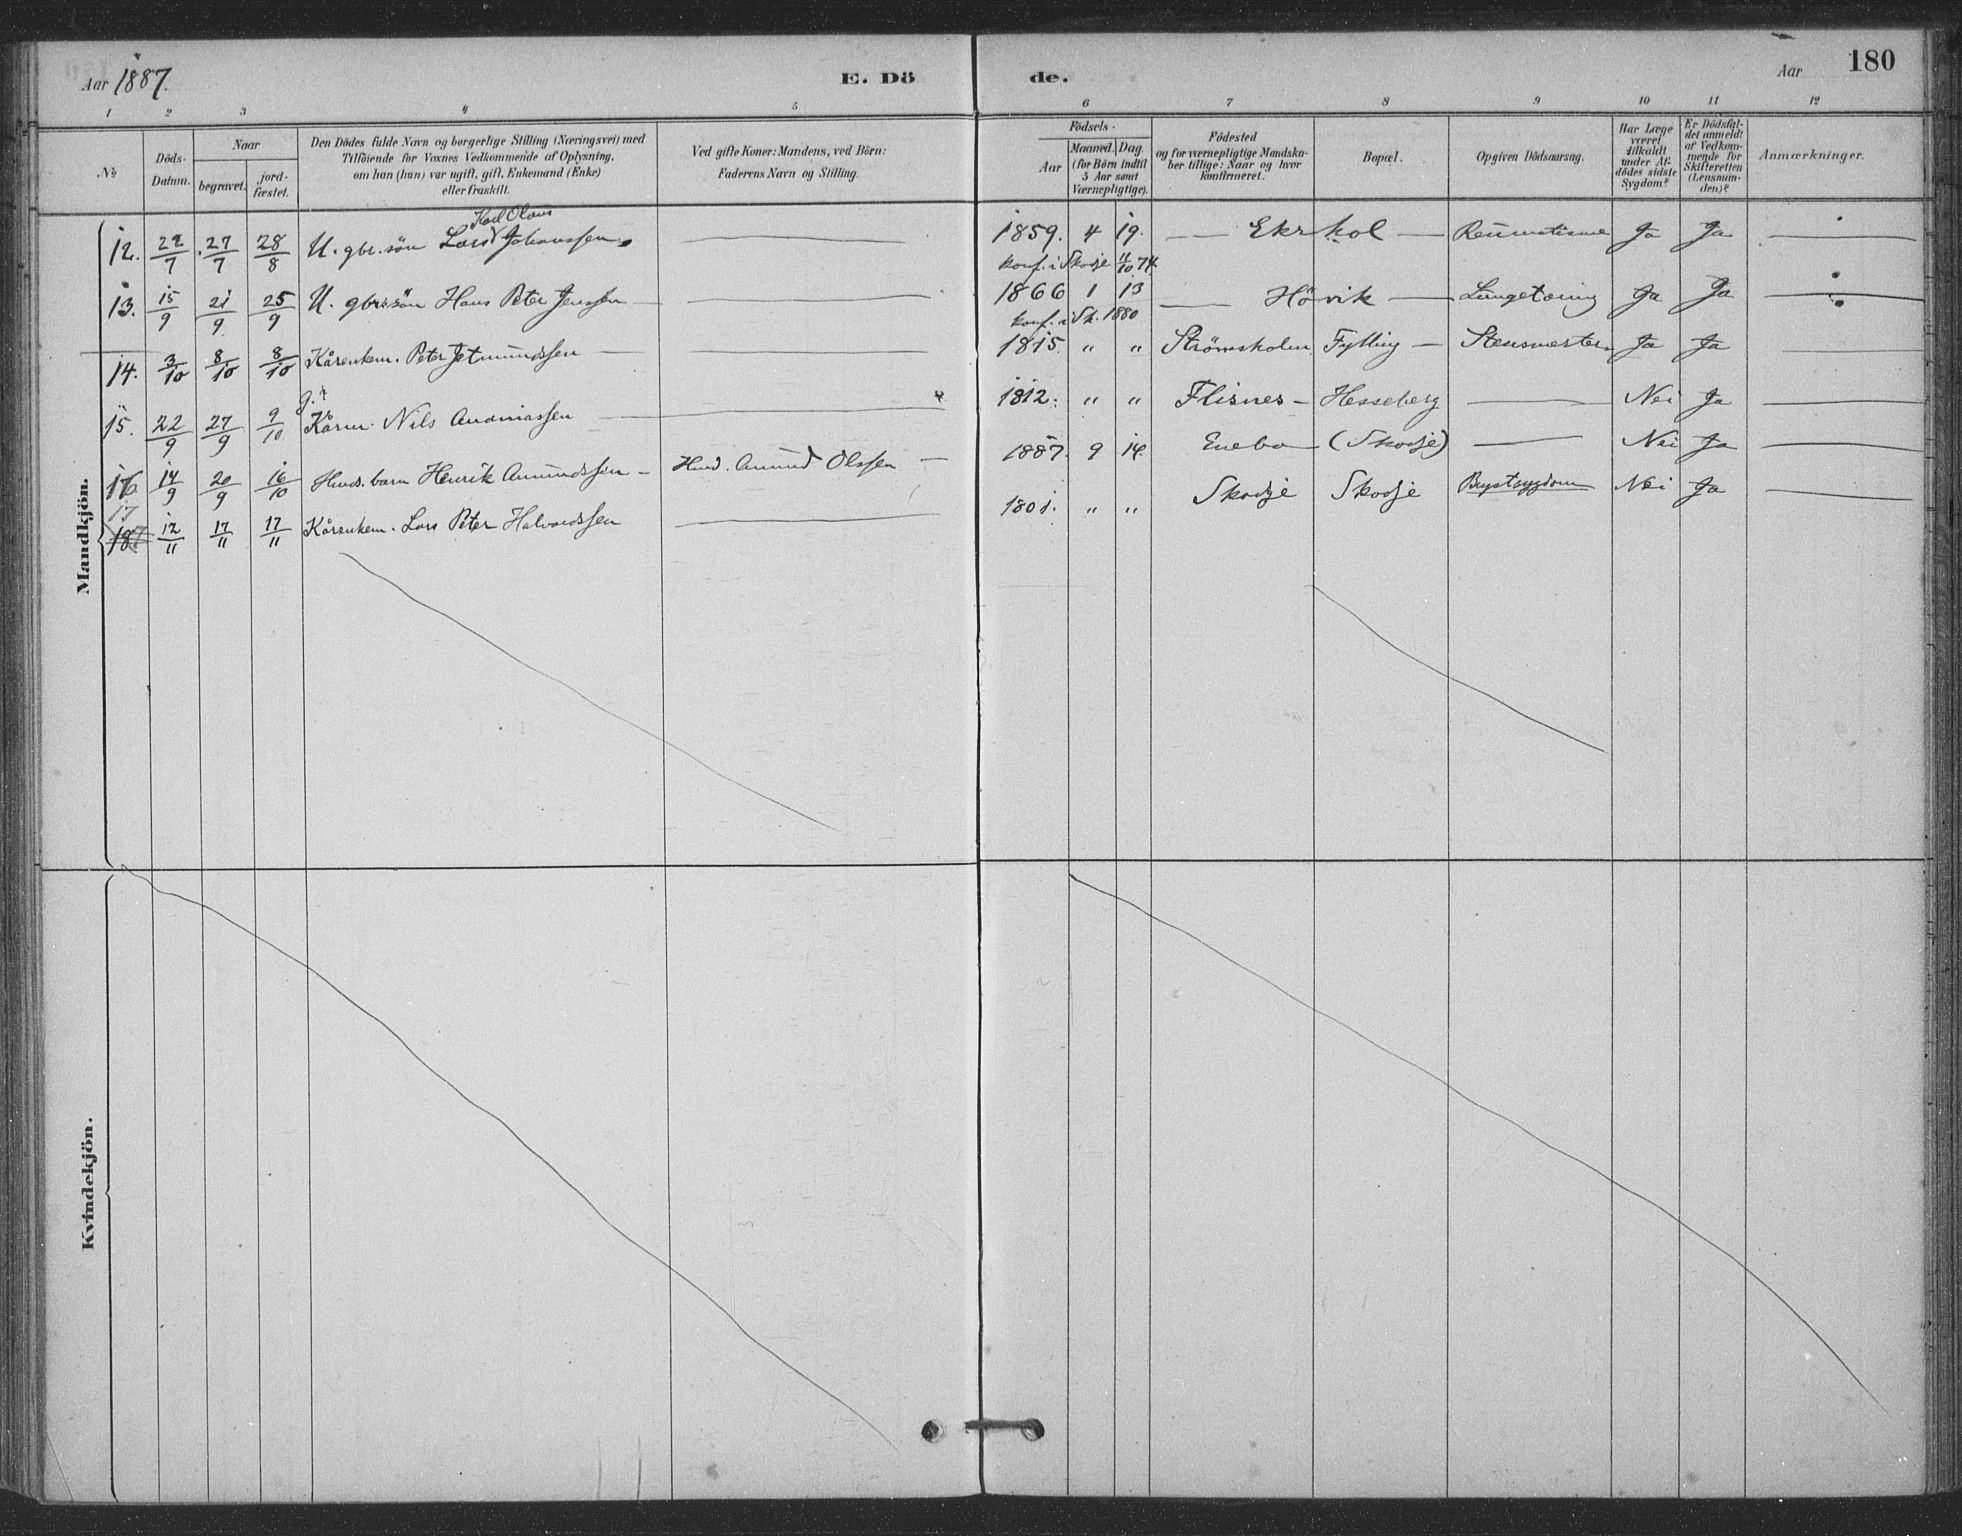 Aar 1887. E. Dö de. Aar 180
1 2 3 4 5 6 7 8 9 10 11 12
No
Döds-Datum.
Naar
begravet.
jord-fæstet.
Den Dödes fulde Navn og borgerlige Stilling (Næringsvei) med
Tilföiende for Voxnes Vedkommende af Oplysning,
om han (hun) var ugift, gift, Enkemand (Enke)
eller fraskilt.
Ved gifte Koner: Mandens, ved Börn:
Faderens Navn og Stilling.
Födsels-
Aar
Maaned. Dag.
(for Börn indtil
5 Aar samt
Værnepligtige).
Födested
og for værnepligtige Mandska-
ber tillige: Naar og hvor
konfirmeret.
Bopæl.
Opgiven Dödsaarsag.
Har Læge
været
tilkaldt
under Af-
dödes sidste
Sygdom?
Er Dödsfal-
det anmeldt
af Vedkom-
mende for
Skifteretten
(Lensman-
den)?
Anmærkninger.
Mandkjön.
Karl Olaus
12. 22/7 27/7 28/8 U. gbr. sön Lars Johanssen. — 1859. 4 19. — Ekrhol — Reumatisme Ja Ja —
konf. i Skodje 11/10 74.
13. 15/9 21/9 25/9 U. gbr. sön Hans Peter Jenssen — 1866 1 13 — Hövik — Lungetæring Ja Ja —
konf. i Sk. 1880
14. 3/10 8/10 8/10 Kårenkem. Peter Jetmundssen — 1815. " " Strömsholm Fylling — Stensmerter Ja Ja —
15. 22/9 27/9 9/10 g. Kårm. Nils Andreassen — 1812. " " Flisnes — Hesseberg — Nei Ja —
16 14/9 20/9 16/10 Husds. barn Henrik Amundssen — Husd. Amund Olssen — 1887. 9 14. Enebo (Skodje) — Nei Ja —
17 12/11 17/11 17/11 Kårenkem. Lars Peter Halvardssen — 1801. " " Skodje Skodje Brystsygdom Nei Ja —
Kvindekjön.